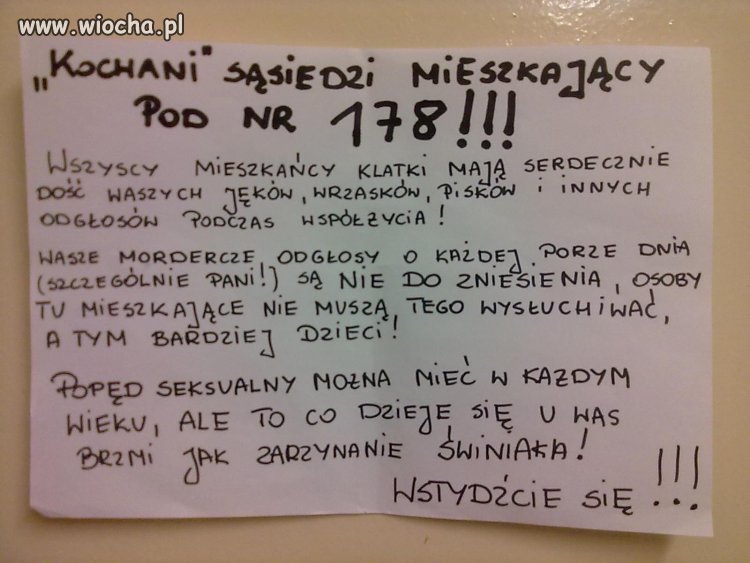 www.wiocha.pl
„KOCHANI" SĄSIEDZI MIESZKAJĄCY
POD NR 178!!!
WSZYSCY MIESZKAŃCY KLATKI MAJĄ SERDECZNIE
DOŚĆ WASZYCH JĘKÓW, WRZASKÓW, PISKÓW I INNYCH
ODGŁOSÓW PODCZAS WSPÓŁŻYCIA!
WASZE MORDERCZE ODGŁOSY O KAŻDEJ PORZE DNIA
(SZCZEGÓLNIE PANI!) SĄ NIE DO ZNIESIENIA, OSOBY
TU MIESZKAJĄCE NIE MUSZĄ TEGO WYSŁUCHIWAĆ,
A TYM BARDZIEJ DZIECI!
POPĘD SEKSUALNY MOŻNA MIEĆ W KAŻDYM
WIEKU, ALE TO CO DZIEJE SIĘ U WAS
BRZMI JAK ZARZYNANIE ŚWINIAKA!
WSTYDŹCIE SIĘ!!!